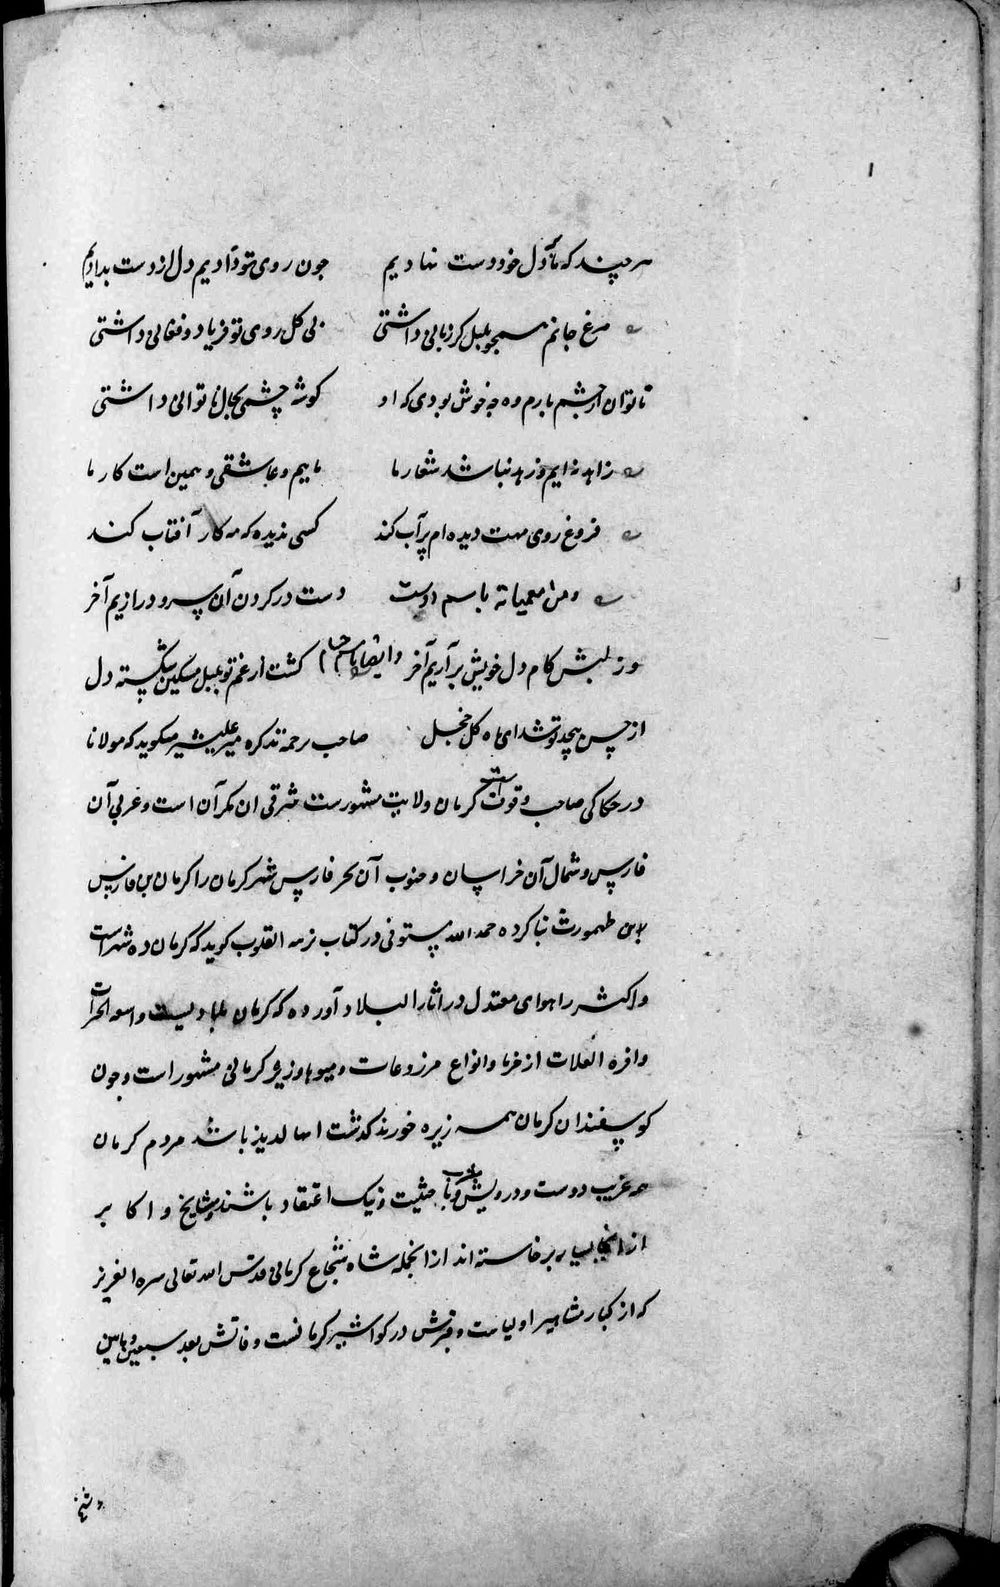 هر چند که ما دل خود دست نهادیم جون روی تو دادیم دل از دست بدادیم
مرغ جانم همجو بلبل کر زبانی داشتی بی کل روی تو فریاد و فغانی داشتی
ناتوان از جشم یارم وه جه خوش بودی که او کوشه چشمی بحال ناتوانی داشتی
زاهد نه ایم و زهد نباشد شعار ما ماییم و عاشقی و همین است کار ما
فروغ روی مهت دیده ام پر آب کند کسی ندیده که مه کار آفتاب کند
و من معمیاته باسم دوست دست در کردن آن سرو درازیم آخر
وز لبش کام دل خویش بر آریم آخر و ایضا باسم کشت از غم تو بلبل مسکین شکسته دل
از حسن بیحد تو شد ای ماه کل خجل صاحب ترجمه تذکره میر علیشیر میکوید که مولانا
در حکاکی صاحب وقوفست کرمان ولایت مشهورست شرقی ان مکران است و غربی آن
فارس و شمال آن خراسان و جنوب آن بحر فارس شهر کرمان را کرمان بن فارس
بن طهمورث بنا کرده حمد الله مستوفی در کتاب نزهه القلوب کوید که کرمان ده شهر است
و اکثر را هوای معتدل در اثار البلاد آورده که کرمان بلادیست واسعه الخیرات
وافره الغلات از خرما و انواع مزروعات و میوها و زیره کرمانی مشهور است و جون
کوسفندان کرمان همه زیره خورند کوشت انها لذیذ باشد مردم کرمان
همه غریب دوست و درویش و با حثیت و نیک اعتقاد باشند و مشایخ و اکابر
از انجا بسیار برخاسته اند از انجمله شاه شجاع کرمانی قدس الله تعالی سره العزیز
که از کبار مشاهیر اولیاست و قبرش در کواشیر کرمانست و فاتش بعد سبعین و ماتین